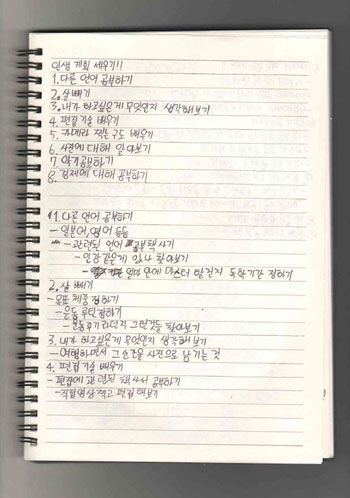 인생 계획 세우기!!
1. 다른 언어 공부하기
2. 살 빼기
3. 내가 하고싶은게 무엇인지 생각해보기
4. 편집 기술 배우기
5. 카메라 찍는 구도 배우기
6. 사진에 대해 알아보기
7. 악기 공부하기
8. 경제에 대해 공부하기
1. 다른 언어 공부하기
- 일본어, 영어 등등
- 관련된 언어 공부책 사기
- 인강 같은게 있나 찾아보기
- 얼마 안에 마스터 할건지 독학기간 정하기
2. 살 빼기
- 목표 체중 정하기
- 운동 루틴 정하기
- 운동기구라던지 그런것들 찾아보기
3. 내가 하고싶은게 무엇인지 생각해보기
- 여행하면서 그 순간을 사진으로 남기는 것
4. 편집 기술 배우기
- 편집에 관련된 책 사서 공부하기
- 직접 영상 찍고 편집 해보기